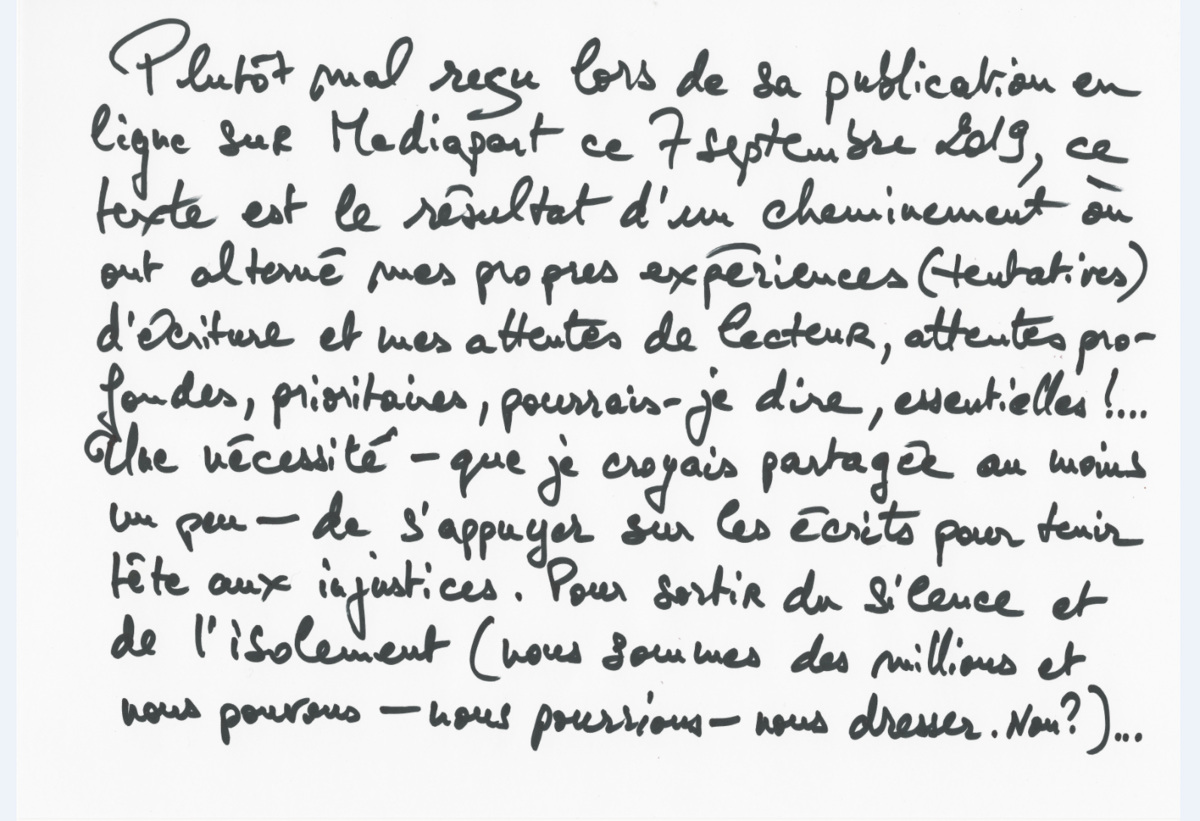 Plutôt mal reçu lors de sa publication en
ligne sur Mediapart ce 7 septembre 2019, ce
texte est le résultat d'un cheminement où
ont alterné mes propres expériences (tentatives)
d'écriture et mes attentes de lecteur, attentes pro-
fondes, prioritaires, pourrais-je dire, essentielles !...
Une nécessité – que je croyais partagée au moins
un peu – de s'appuyer sur les écrits pour tenir
tête aux injustices. Pour sortir du silence et
de l'isolement (nous sommes des millions et
nous pouvons – nous pourrions – nous dresser. Non?)...